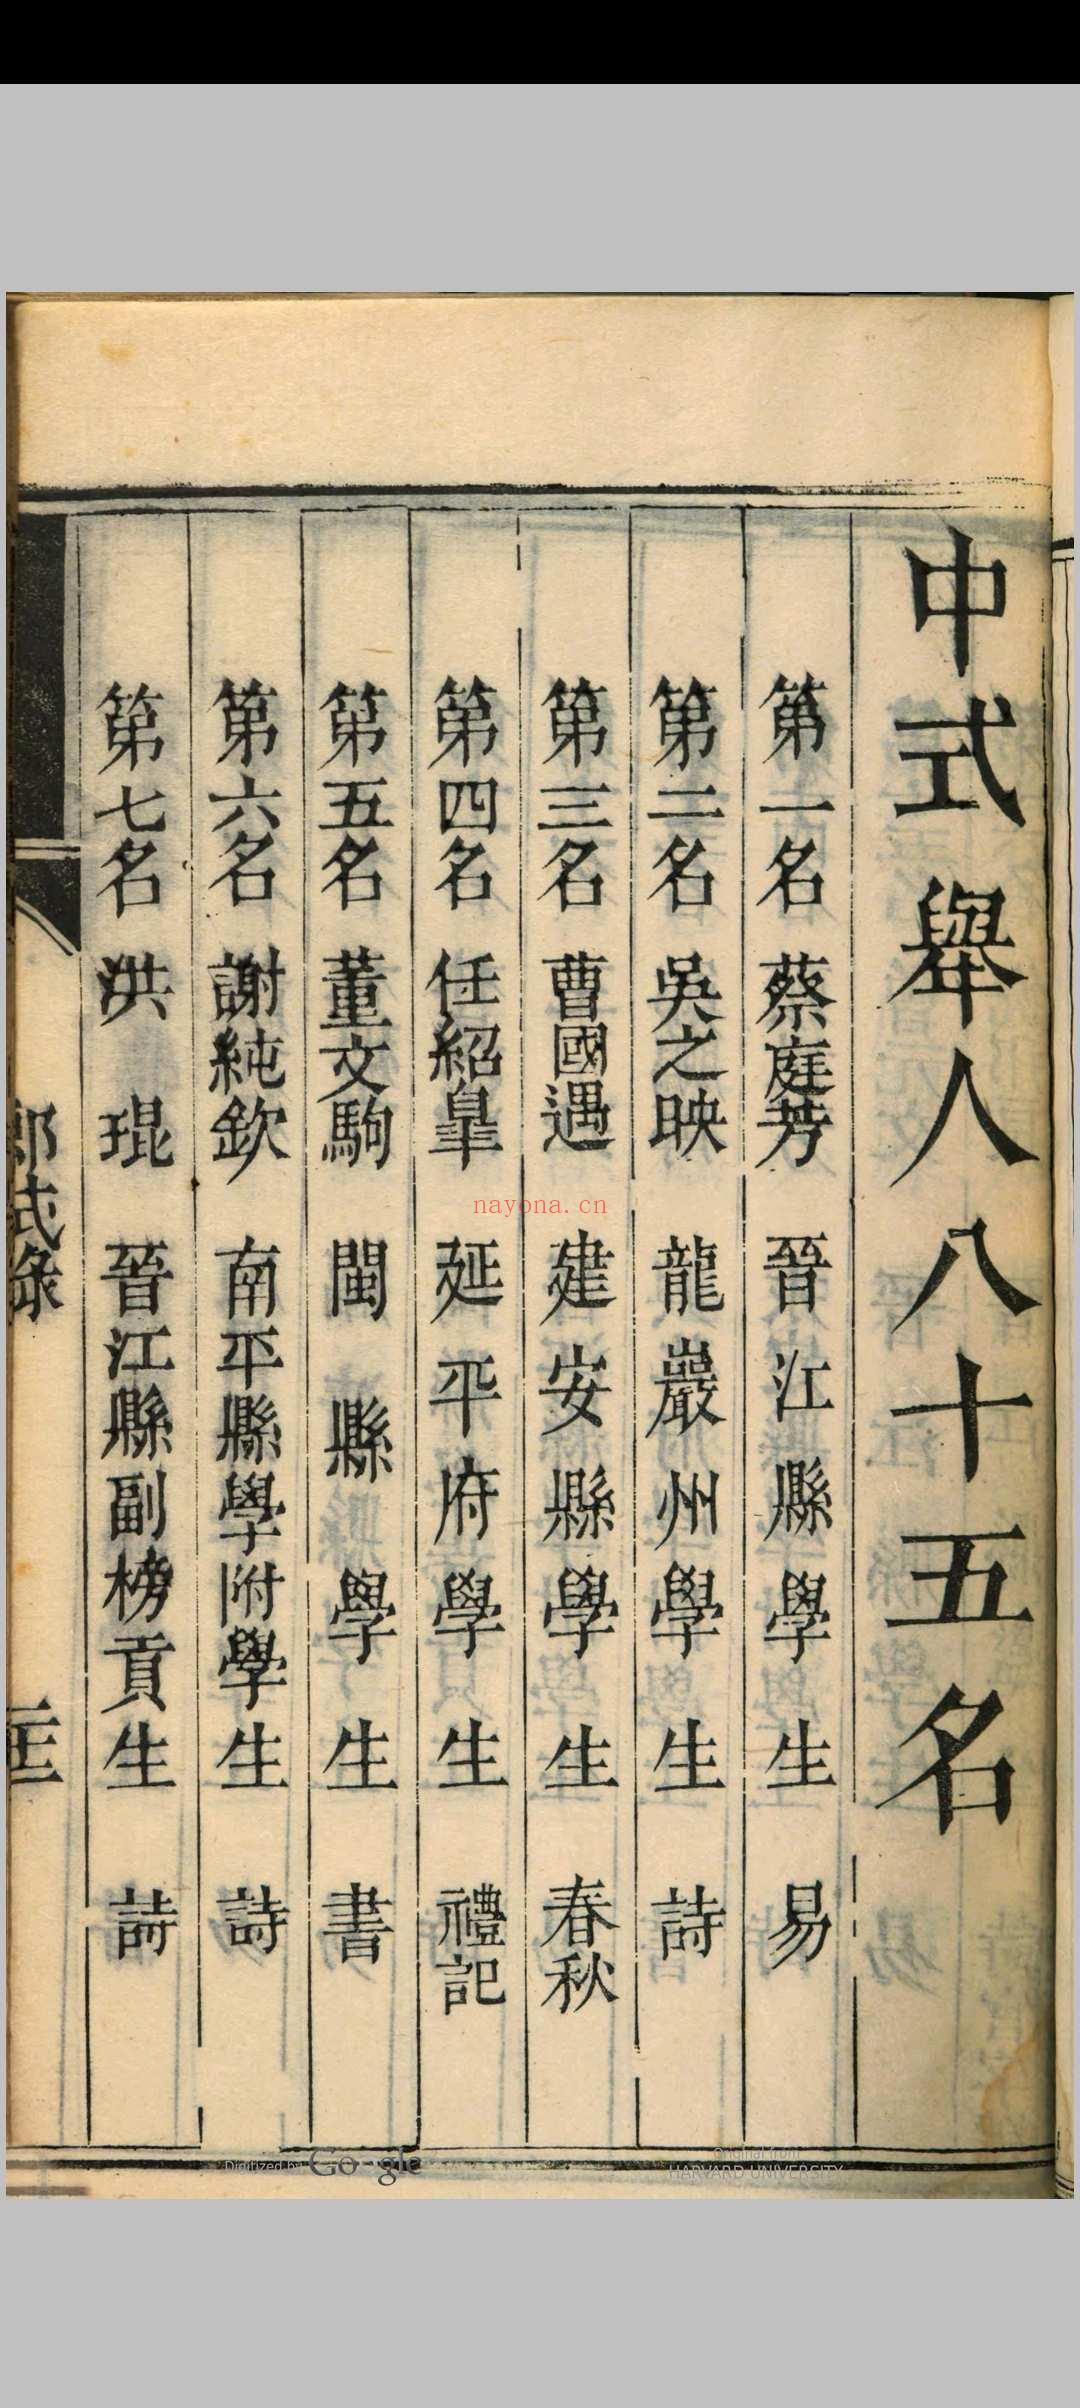 中式舉人八十五名
第一名 蔡庭芳 晉江縣學生 易
第二名 吳之映 龍巖州學生 詩
第三名 曹國遇 建安縣學生 春秋
第四名 任紹皐 延平府學生 禮記
第五名 董文駒 閩縣學生 書
第六名 謝純欽 南平縣學附學生 詩
第七名 洪琨 晉江縣副榜貢生 詩
nayona.cn
Digitized by Google
Original from
HARVARD UNIVERSITY